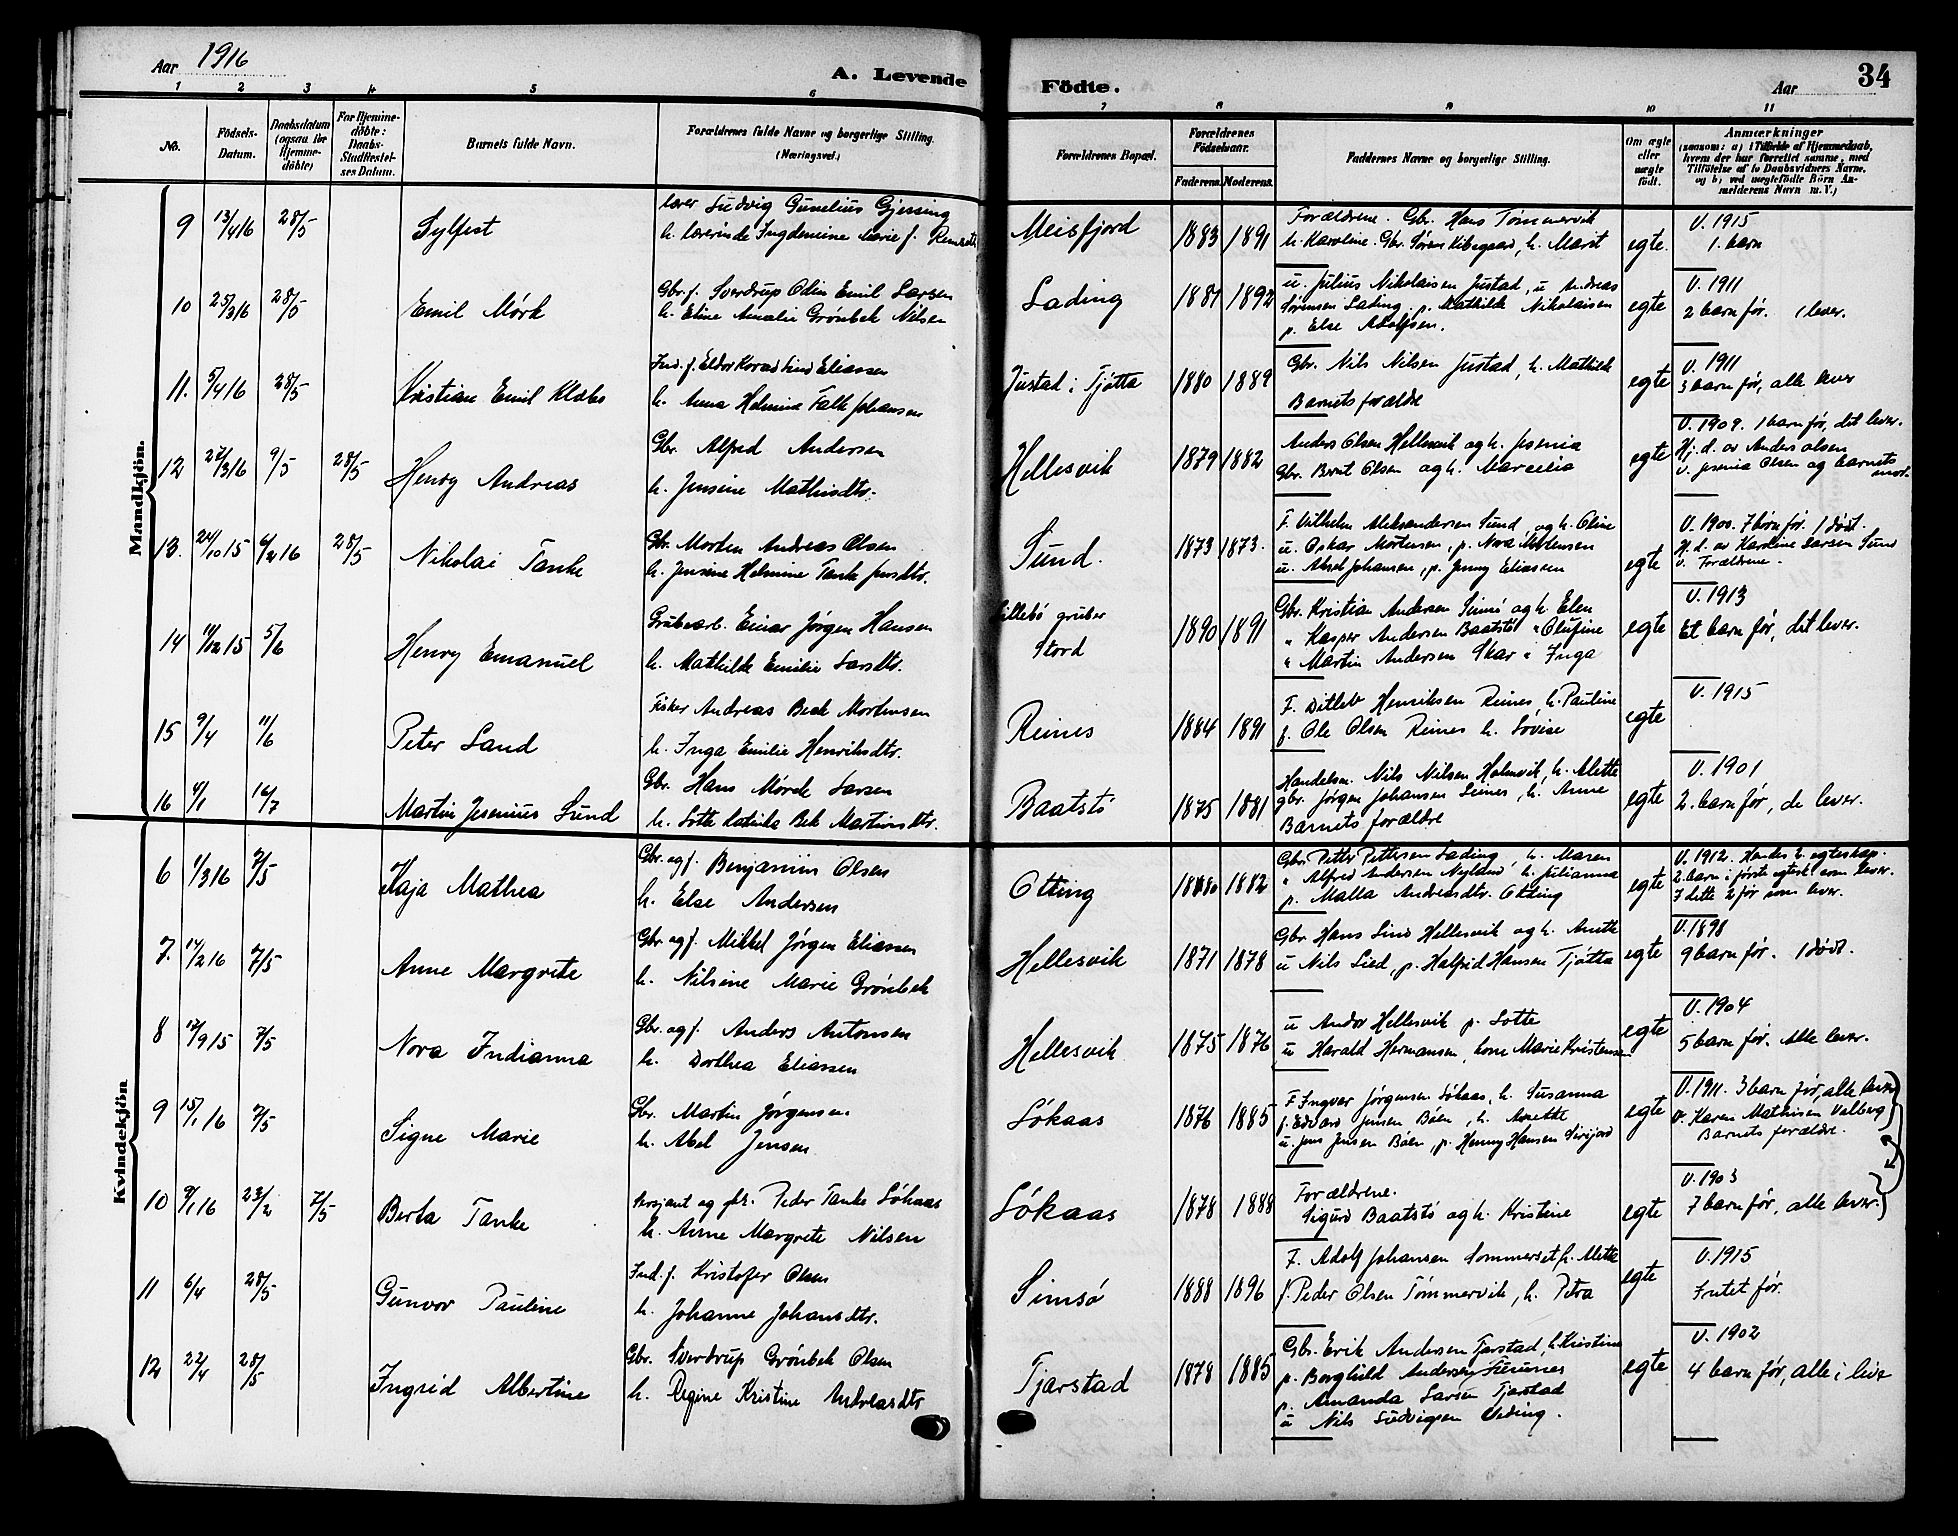 Aar 1916
A. Levende
Fødte.
Aar
34
1 2 3 4 5 6 7 8 9 10 11
No.
Fødsels-
Datum.
Daabsdatum
(ogsaa for
Hjemme-
døbte)
For Hjemme-
døbte:
Daabs-
Stadfæstel-
ses Datum.
Barnets fulde Navn.
Forældrenes fulde Navne og borgerlige Stilling.
(Næringsvei.)
Forældrenes Bopæl.
Forældrenes
Fødselsaar.
Faderens. Moderens.
Faddernes Navne og borgerlige Stilling.
Om ægte
eller
uægte
født.
Anmærkninger
(saasom: a) i Tilfælde af Hjemmedaab,
hvem der har forrettet samme, med
Tilføielse af to Daabsvidners Navne,
og b) ved uægtefødte Børn An-
melderens Navn m. V.)
Mandkjön.
9 13/4 16 28/5 Sylfest
lærer Ludvig Cunelius Gjessing
h. lærerinde Ingdemine Marie f.
Meisfjord 1883 1891
Forældrene. Gbr. Hans Tømmervik
h. Karoline. Gbr. Søren Kibsgaard, h. Marit
egte.
V. 1915
1. barn
10 25/3 16 28/5 Emil Mörk
Gbr. f. Sverdrup Odin Emil Larsen
h. Eline Amalie Grönbek Nilsen
Lading 1887 1892
u. Julius Nikolaisen Justad, u Andreas
Sörensen Lading, p. Mathilde Nikolaisen
p. Else Adolfsen.
egte
V. 1911
2 barn før. 1 lever.
11. 5/4 16 28/5 Kristian Emil Klæbo
Ind. f. Eldor Konrad Lind Eliassen
h. Anna Helmine Falk Johansen
Justad i Tjøtta 1880 1889
Gbr. Nils Nilsen Justad, h. Mathilde
Barnets forældre
egte
V. 1911
3 barn før, alle lever
12 27/3 16 9/5 28/5 Henry Andreas
Gbr. Alfred Andersen
h. Jensine Mathisdtr.
Hellesvik 1879 1882
Anders Olsen Hellesvik og h. Jesenia
Gbr. Bernt Olsen og h. Marselia
egte
V. 1909. 1 barn før, det lever.
Hj. d. av Anders Olsen
v. Jesenia Olsen og barnets
mor.
13. 24/10 15 6/2 16 28/5 Nikolai Tanke
Gbr. Morten Andreas Olsen
h. Jensine Helmine Tanke Jensdtr.
Sund. 1873 1873.
F. Vilhelm Aleksandersen Sund, og h. Oline
u. Oskar Mortensen, p. Nora Mortensen
u. Aksel Johansen, p. Jenny Eliassen
egte
V. 1900. 7 barn før. 1 død.
H. d. av Karoline Larsen Sund
v. Forældrene.
14 15 5/6 Henry Emanuel
Grubearb. Einar Jørgen Hansen
h. Mathilde Emilie Larsdtr.
Lillebö gruber
Stord
1890 1891
Gbr. Kristian Andersen Simsö og h. Elen
" Kasper Andersen Baatstö " Olufine
" Martin Andersen Skar " Inga
egte
V. 1913
Et barn før, det lever.
15 9/4 11/6 Peter Sand
Fisker Andreas Beck Mortensen
h. Inga Emilie Henriksdtr.
Reines 1884 1891
F. Ditlef Henriksen Reines, h. Pauline
f. Ole Olsen Reines h. Lovise
egte
V. 1915
16 16/7 Martin Jesenius Sund
Gbr. Hans Mörch Larsen
h. Lotte Katinka Bek Martinsdtr.
Baatstö 1875 1881
Handelsm. Nils Nilsen Holmvik, h. Alette
gbr. Jörgen Johansen Leines, h. Anne
Barnets forældre
egte
V. 1901
2. barn før, de lever.
Kvindekjön
6 1/3 16 7/5 Kaja Mathea
Gbr. og f. Benjamin Olsen
h. Else Andersen
Otting 1880 1882
Gbr. Petter Pettersen Lading, h. Maren
" Alfred Andersen Nyland, h. Julianna
p. Malla Andreasdtr. Otting
egte
V. 1912. Hendes 2. egteskap.
2. barn i første egtesk. som lever.
I dette 2 før som lever.
7. 14/2 16 7/5 Anne Margrete
Gbr. og f. Mikkel Jörgen Eliassen
h. Nilsine Marie Grönbek
Hellesvik 1871 1878
Gbr. Hans Lind Hellesvik og h. Anette
u Nils Lied, p. Halfrid Hansen Tjøtta
egte
V. 1898
9 barn før. 1 død.
8 12/9 15 7/5 Nora Indianna
Gbr. og f. Anders Antonsen
h. Dorthea Eliassen
Hellesvik 1875 1876
u Andor Hellesvik p. Lotte
u Harald Hermansen, kone Marie Kristensen
egte
V. 1904
5 barn før. Alle lever.
9 15/1 16 7/5 Signe Marie
Gbr. Martin Jörgensen
h. Abel Jensen
Lökaas 1876 1885
F. Ingvar Jørgensen Lökaas, h. Susanna
f. Edvard Jensen Böen, h. Anette
u. Jens Jensen Böen, p. Henny Hansen Sirijord
egte
V. 1911. 3 barn før, alle lever
v. Karen Mathisen Valberg
Barnets forældre.
10 9/1 16 23/2 7/5 Berta Tanke
Sersjant og gbr. Peder Tanke Lökaas
h. Anne Margrete Nilsen
Lökaas 1878 1888
Forældrene.
Sigurd Baatstö og h. Kristine
egte
V. 1903
7 barn før, alle lever.
11 6/4 28/5 Gunvor Pauline
Ind. f. Kristofer Olsen
h. Johanne Johansdtr.
Simsö 1888 1896
F. Adolf Johansen Sommerset, h. Alette
f. Peder Olsen Tömmervik, h. Petra
egte
V. 1915
Intet før.
12 22/4 28/5 Ingrid Albertine
Gbr. Sverdrup Grönbek Olsen
h. Regine Kristine Andreasdtr
Tjarstad 1878 1885
Gbr. Erik Andersen Tjarstad, h. Kristine
p. Borghild Andersen
p. Amanda Larsen Tjarstad
u Nils Ludvigsen
egte
V. 1902
4 barn før, alle i live